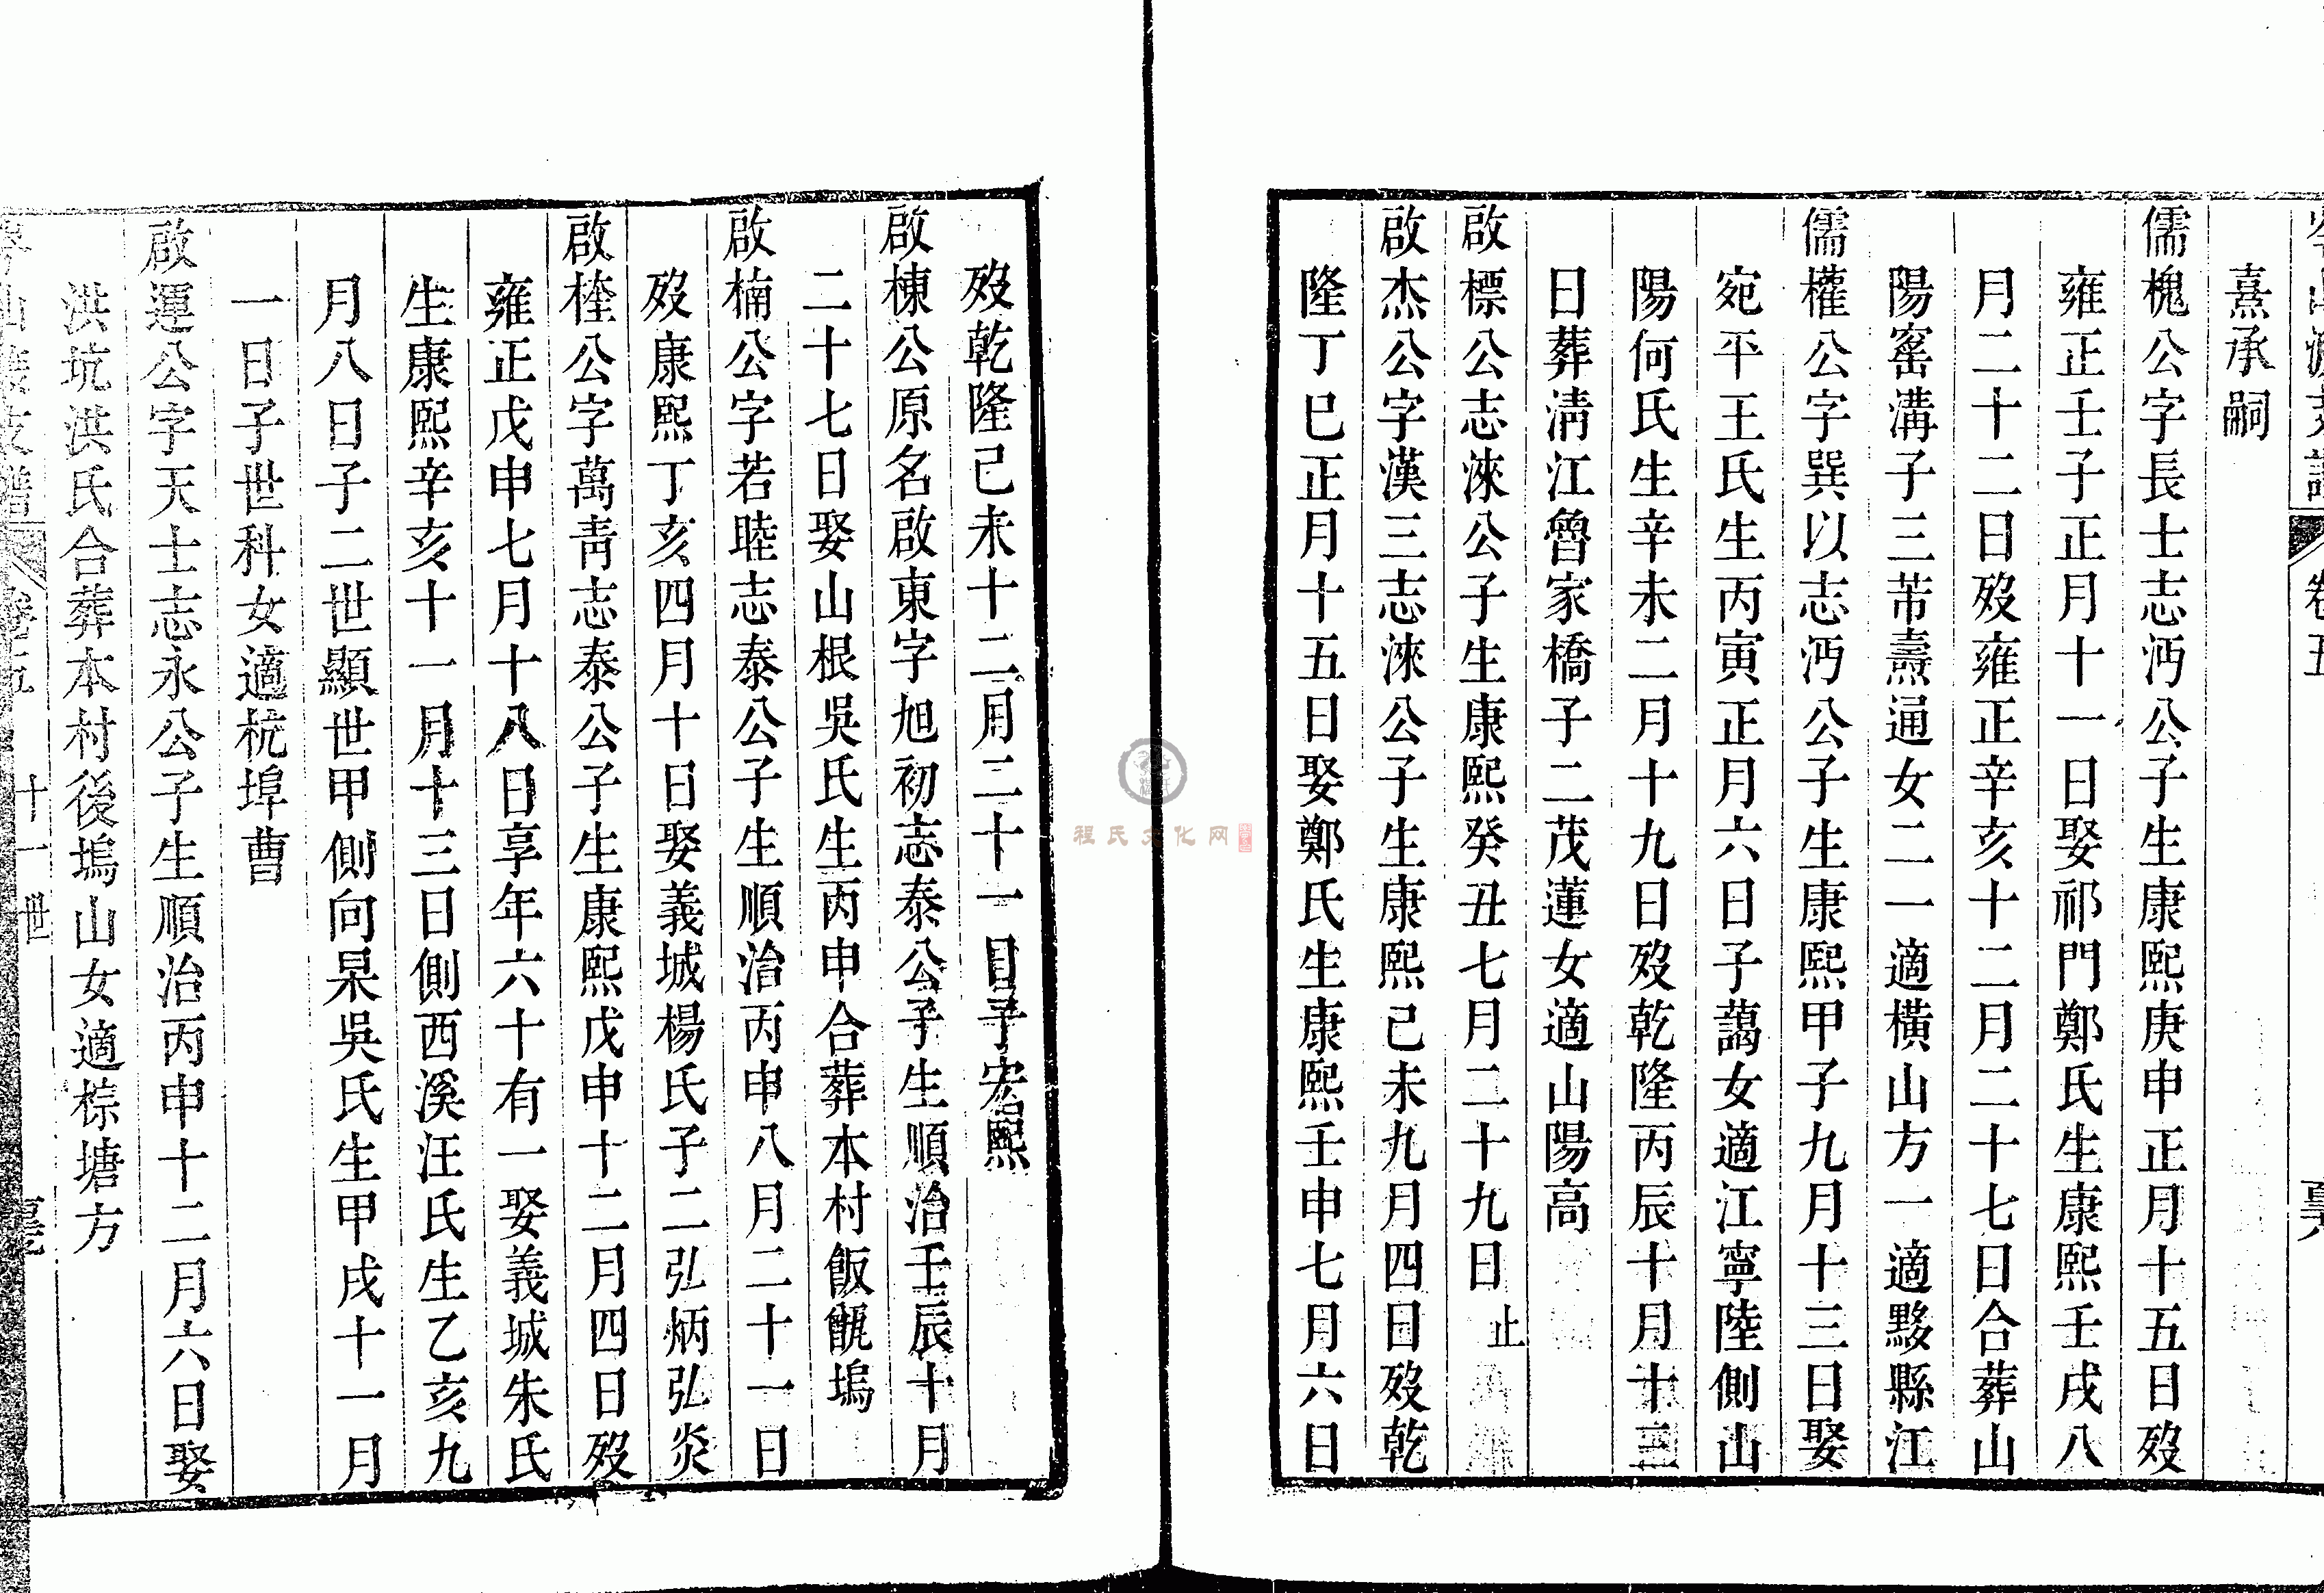 卷五
熹承嗣
儒槐公字長士志沔公子生康熙庚申正月十五日歿
雍正壬子正月十一日娶祁門鄭氏生康熙壬戌八
月二十二日歿雍正辛亥十二月二十七日合葬山
陽窰溝子三芾燾通女二一適橫山方一適黟縣江
儒權公字巽以志沔公子生康熙甲子九月十三日娶
宛平王氏生丙寅正月六日子藹女適江寧陸側山
陽何氏生辛未二月十九日歿乾隆丙辰十月十三
日葬淸江曾家橋子二茂蓮女適山陽高
啟標公志淶公子生康熙癸丑七月二十九日止
啟杰公字漢三志淶公子生康熙己未九月四日歿乾
隆丁巳正月十五日娶鄭氏生康熙壬申七月六日
歿乾隆己未十二月二十一日子宏熙
啟棟公原名啟東字旭初志泰公子生順治壬辰十月
二十七日娶山根吳氏生丙申合葬本村飯甑塢
啟楠公字若睦志泰公子生順治丙申八月二十一日
歿康熙丁亥四月十日娶義城楊氏子二弘炳弘炎
啟楏公字萬靑志泰公子生康熙戊申十二月四日歿
雍正戊申七月十八日享年六十有一娶義城朱氏
生康熙辛亥十一月十三日側西溪汪氏生乙亥九
月八日子二世顯世甲側向杲吳氏生甲戌十一月
一日子世科女適杭埠曹
啟運公字天士志永公子生順治丙申十二月六日娶
洪坑洪氏合葬本村後塢山女適棕塘方
卷五 十一世
程氏文化网